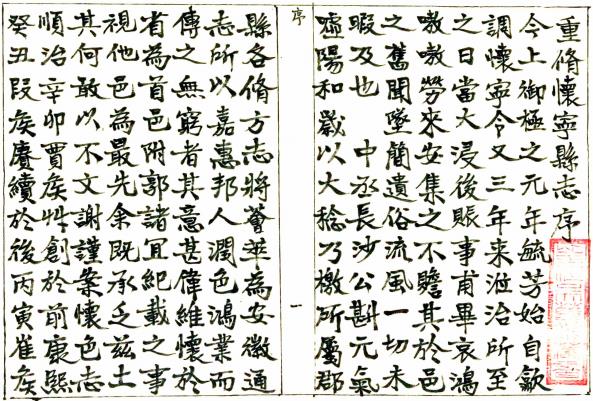 重脩懷寧縣志序
今上御極之元年毓芳始自歙
調懷寧令又三年來涖治所至
之日當大浸後賑事甫畢哀鴻
嗷嗷勞來安集之不贍其於邑
之舊聞墜簡遺俗流風一切未
暇及也　中丞長沙公斟元氣
噓陽和歲以大稔乃檄所屬郡
序
一
縣各脩方志將薈萃為安徽通
志所以嘉惠邦人潤色鴻業而
傳之無窮者其意甚偉維懷於
省為首邑附郭諸冝紀載之事
視他邑為最先余既承乏兹土
其何敢以不文謝謹案懷邑志
順治辛卯賈矦創於前康熙
癸丑段矦賡續於後丙寅崔矦